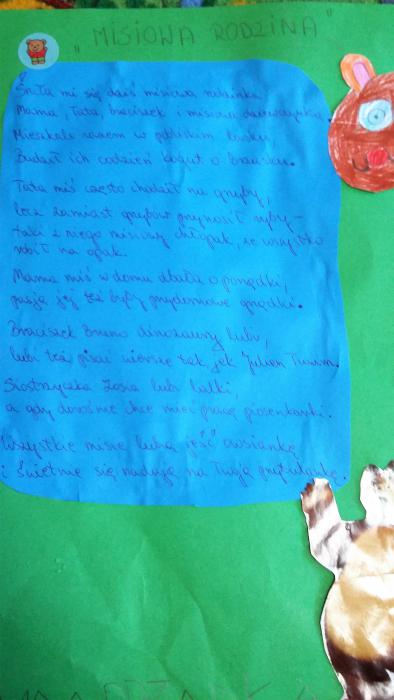 "MISIOWA RODZINA"
Śniła mi się dziś misiowa rodzinka
Mama, Tata, braciszek i misiowa dziewczynka.
Mieszkali razem w pobliskim lasku,
Budził ich codzień kogut o brzasku.
Tata miś często chodził na grzyby,
lecz zamiast grzybów przynosił ryby –
taki z niego misiowy chłopak, że wszystko
robił na opak.
Mama miś w domu dbała o porządki,
pasją jej też były przydomowe grządki.
Braciszek Bruno dinozaury lubi,
lubi też pisać wiersze tak, jak Julian Tuwim.
Siostrzyczka Zosia lubi lalki,
a gdy dorośnie chce mieć pracę piosenkarki.
Wszystkie misie lubią jeść owsiankę
i świetnie się nadają na Twoją przytulankę.